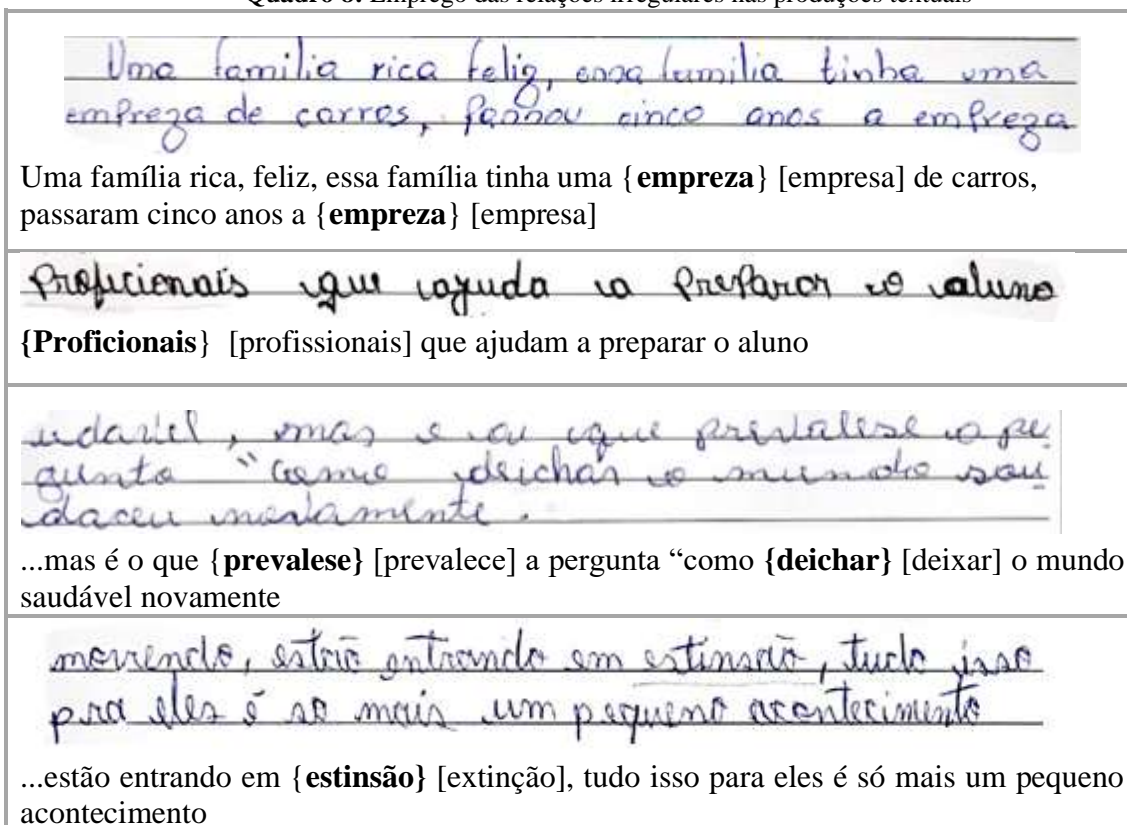 Quadro 8: Emprego das relações irregulares nas produções textuais
Uma familia rica feliz, essa familia tinha uma
empreza de carros, passou cinco anos a empreza
Uma família rica, feliz, essa família tinha uma {empreza} [empresa] de carros,
passaram cinco anos a {empreza} [empresa]
Proficionais que ajuda a preparar o aluno
{Proficionais} [profissionais] que ajudam a preparar o aluno
mas e o que prevalese a pe
gunta "Como deichar o mundo sau
novamente.
...mas é o que {prevalese} [prevalece] a pergunta “como {deichar} [deixar] o mundo
saudável novamente
morrendo, estão entrando em estinsão, tudo isso
pra eles é so mais um pequeno acontecimento
...estão entrando em {estinsão} [extinção], tudo isso para eles é só mais um pequeno
acontecimento